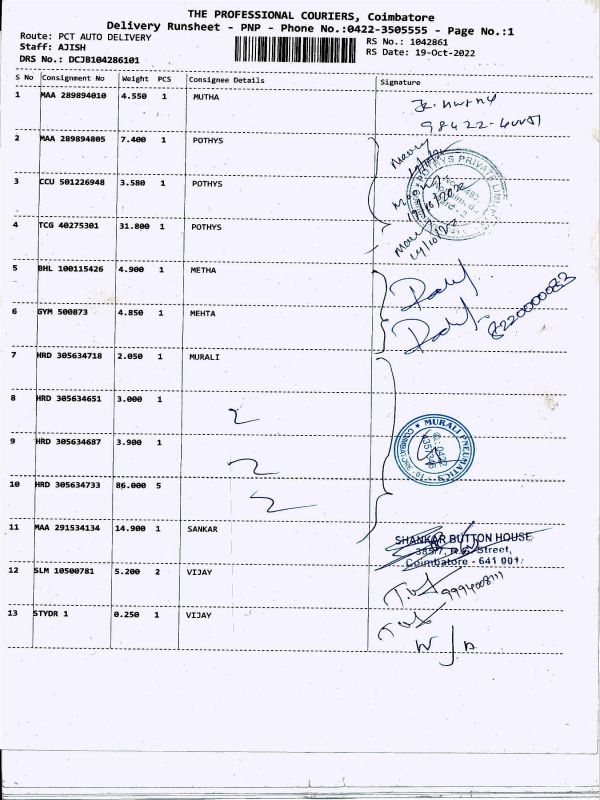 THE PROFESSIONAL COURIERS, Coimbatore
Delivery Runsheet - PNP - Phone No.:0422-3505555 - Page No.:1
Route: PCT AUTO DELIVERY
Staff: AJISH
DRS No.: DCJB104286101
RS No.: 1042861
RS Date: 19-Oct-2022
S No Consignment No Weight PCS Consignee Details Signature
1 MAA 289894010 4.550 1 MUTHA
2 MAA 289894805 7.400 1 POTHYS
3 CCU 501226948 3.580 1 POTHYS
4 TCG 40275301 31.800 1 POTHYS
POTHYS PRIVATE LIMITED
19/10/2022
5 BHL 100115426 4.900 1 METHA
6 GYM 500873 4.850 1 MEHTA
8220000083
7 HRD 305634718 2.050 1 MURALI
8 HRD 305634651 3.000 1
9 HRD 305634687 3.900 1
MURALI PNEUMATICS
10 HRD 305634733 86.000 5
11 MAA 291534134 14.900 1 SANKAR
SHANKAR BUTTON HOUSE
Street,
Coimbatore - 641 001.
12 SLM 10500781 5.200 2 VIJAY
13 STYDR 1 0.250 1 VIJAY